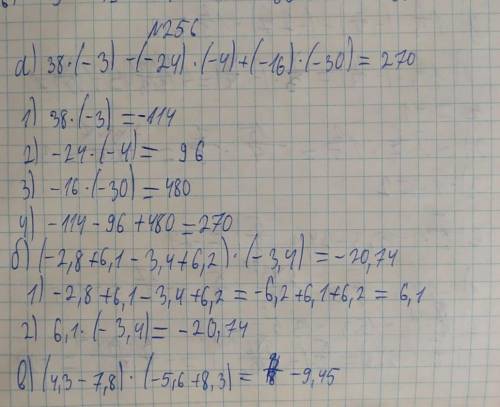 №256
а) 38·(-3) -(-24)·(-4)+(-16)·(-30)= 270
1) 38·(-3)=-114
2) -24·(-4)= 96
3) -16·(-30)=480
4) -114-96+480=270
б) (-2,8+6,1-3,4+6,2)·(-3,4)=-20,74
1) -2,8+6,1-3,4+6,2=-6,2+6,1+6,2=6,1
2) 6,1·(-3,4)=-20,74
в) (4,3-7,8)·(-5,6+8,3)= -9,45